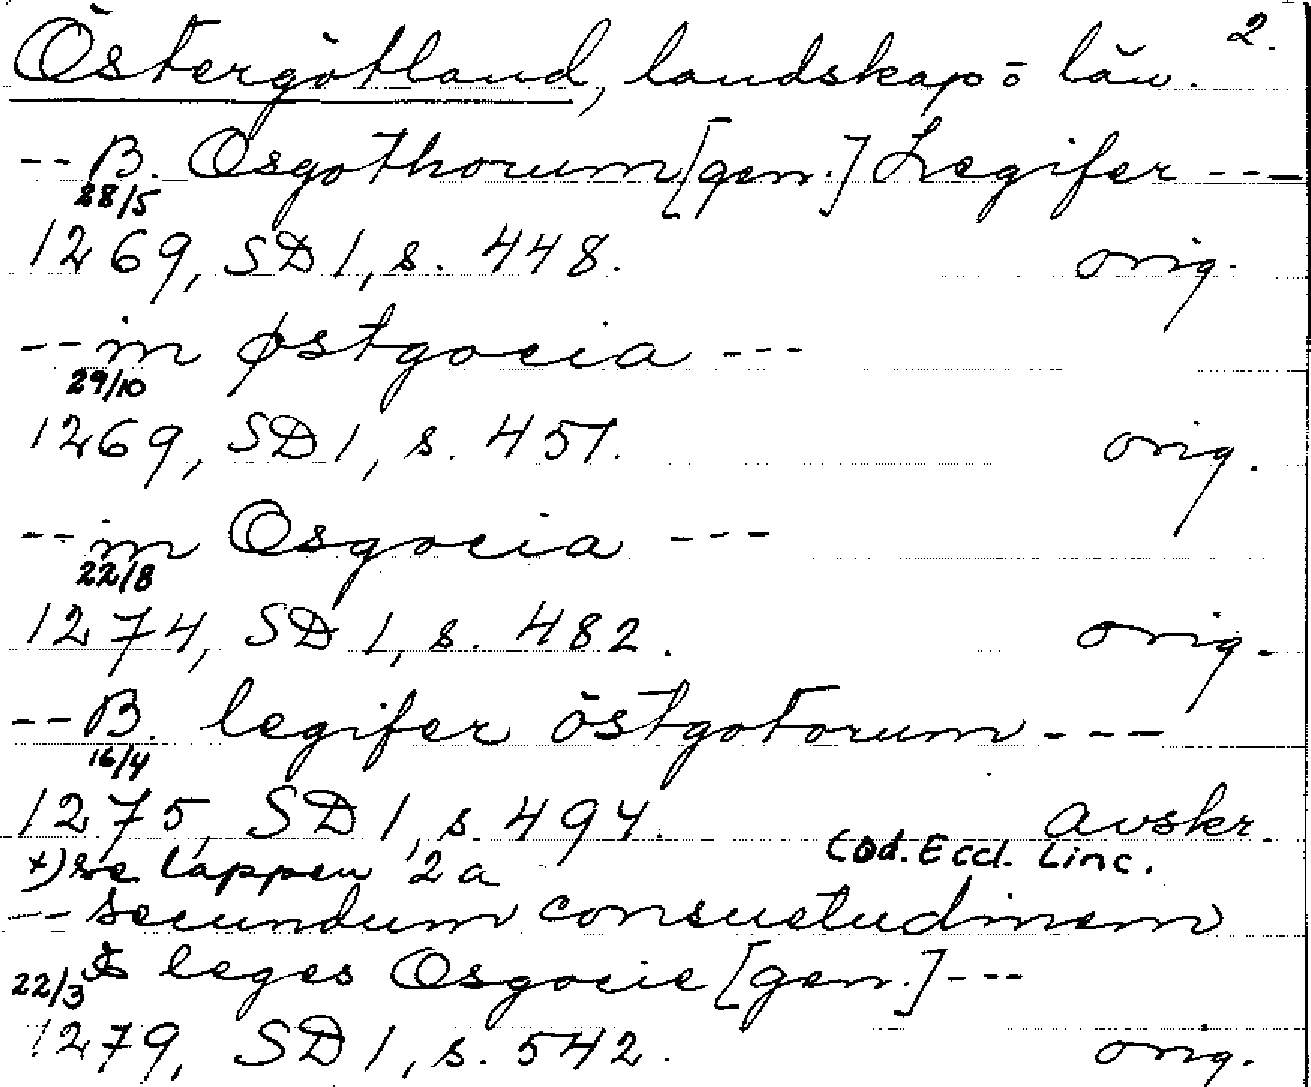 2.
Östergötland, landskap o län.
-- B. Osgothorum [gen.] Legifer ---
28/5
1269, SD 1, s. 448. orig.
-- in østgocia ---
29/10
1269, SD 1, s. 451. orig.
-- in Osgocia ---
22/8
1274, SD 1, s. 482. orig.
-- B. legifer östgotorum ---
16/4
1275, SD 1, s. 494. avskr.
Cod. Eccl. Linc.
+) se lappen 2a
-- secundum consuetudinem
& leges Osgocie [gen.] ---
22/3
1279, SD 1, s. 542. orig.